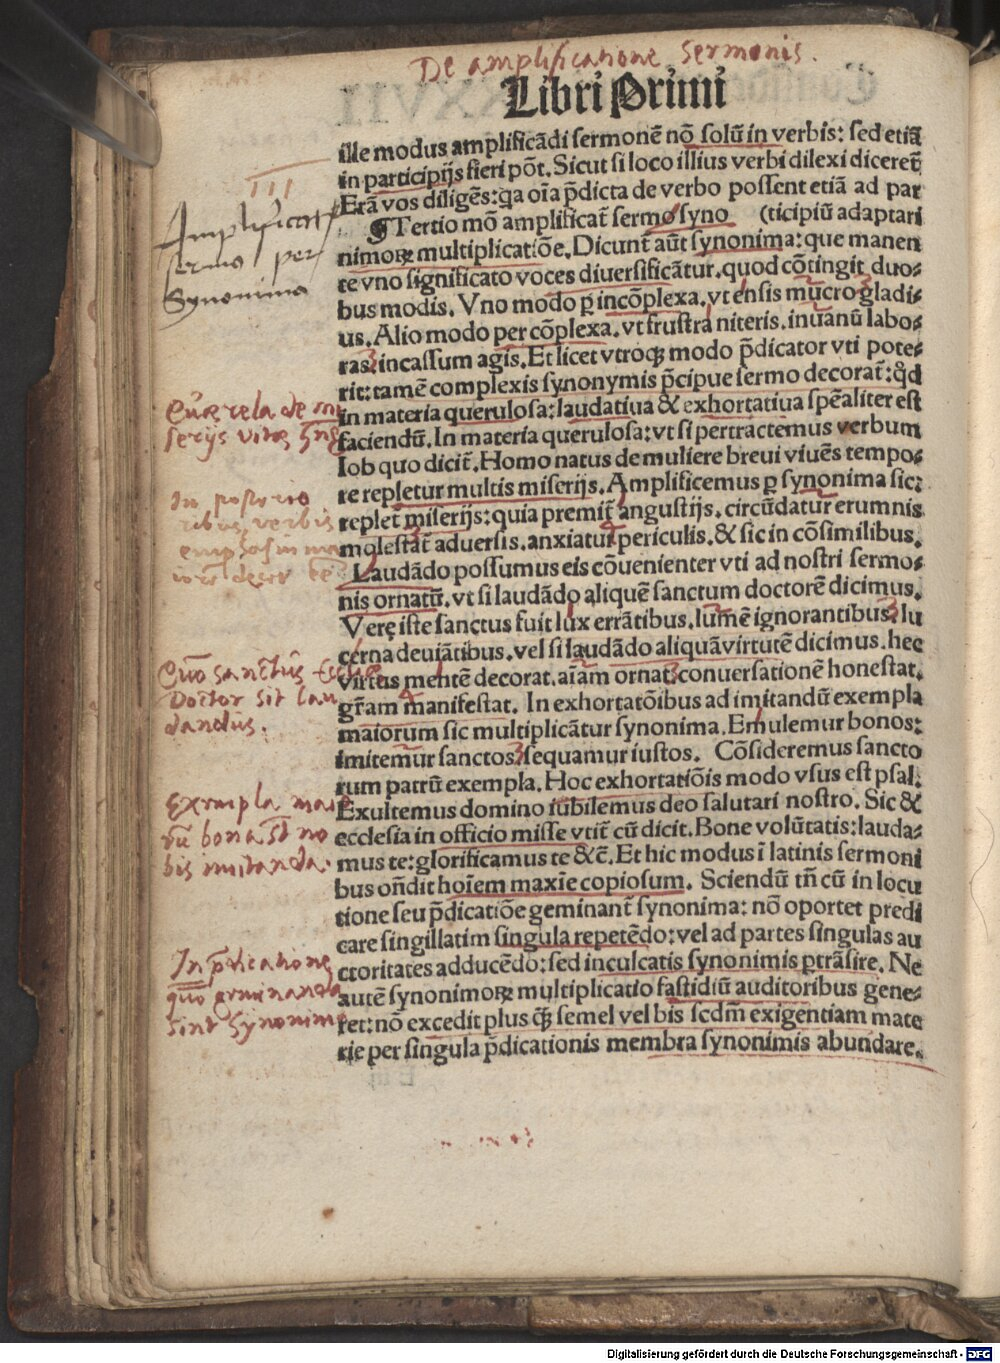 De amplificatione sermonis.
Libri Primi
ille modus amplificādi sermonē nō solū in verbis: sed etiā
in participijs fieri pōt. Sicut si loco illius verbi dilexi diceret̄
Erā vos diligēs: q̄a oīa p̄dicta de verbo possent etiā ad par
¶Tertio mō amplificat̄ sermo syno (ticipiū adaptari
nimoꝝ multiplicatiōe. Dicunt̄ aūt synonima: que manen
te vno significato voces diuersificātur. quod cōtingit duo⸗
bus modis. Vno modo ꝑ incōplexa. vt ensis mucro gladi⸗
us. Alio modo per cōplexa. vt frustra niteris. inuanū labo⸗
ras. incassum agis. Et licet vtroqꝫ modo p̄dicator vti pote⸗
rit: tamē complexis synonymis p̄cipue sermo decorat̄: qd̄
in materia querulosa: laudatiua & exhortatiua spēaliter est
faciendū. In materia querulosa: vt si pertractemus verbum
Iob quo dicit̄. Homo natus de muliere breui viuēs tempo⸗
re repletur multis miserijs. Amplificemus ꝑ synonima sic:
replet̄ miserijs: quia premit̄ angustijs. circūdatur erumnis
molestat̄ aduersis. anxiatur periculis. & sic in cōsimilibus.
Laudādo possumus eis cōuenienter vti ad nostri sermo⸗
nis ornatū. vt si laudādo aliquē sanctum doctorē dicimus.
Verę iste sanctus fuit lux errātibus. lumē ignorantibus. lu
cerna deuiātibus. vel si laudādo aliquā virtutē dicimus. hec
virtus mentē decorat. aīam ornat. conuersationē honestat.
gr̄am manifestat. In exhortatōibus ad imitandū exempla
maiorum sic multiplicātur synonima. Emulemur bonos:
imitemur sanctos. sequamur iustos. Cōsideremus sancto
rum patrū exempla. Hoc exhortatiōis modo vsus est psal.
Exultemus domino iubilemus deo salutari nostro. Sic &
ecclesia in officio misse vtit̄ cū dicit. Bone volūtatis: lauda⸗
mus te: glorificamus te &c̄. Et hic modus ī latinis sermoni
bus on̄dit hoīem maxīe copiosum. Sciendū tn̄ cū in locu
tione seu p̄dicatiōe geminant̄ synonima: nō oportet predi
care singillatim singula repetēdo: vel ad partes singulas au
ctoritates adducēdo: sed inculcatis synonimis ꝑtrāsire. Ne
autē synonimoꝝ multiplicatio fastidiū auditoribus gene⸗
ret: nō excedit plus qꝫ semel vel bis scdm̄ exigentiam mate
rie per singula p̄dicationis membra synonimis abundare.
III
Amplificat̄
sermo per
Synonima
Quærela de mi
serijs vitæ
In
verbis
Quō sanctus
Doctor sit lau
dandus.
Exempla maio
rū bona st̄ no
bis imitanda.
In p̄dicatione
quō geminanda
sint Synonima
Digitalisierung gefördert durch die Deutsche Forschungsgemeinschaft - DFG